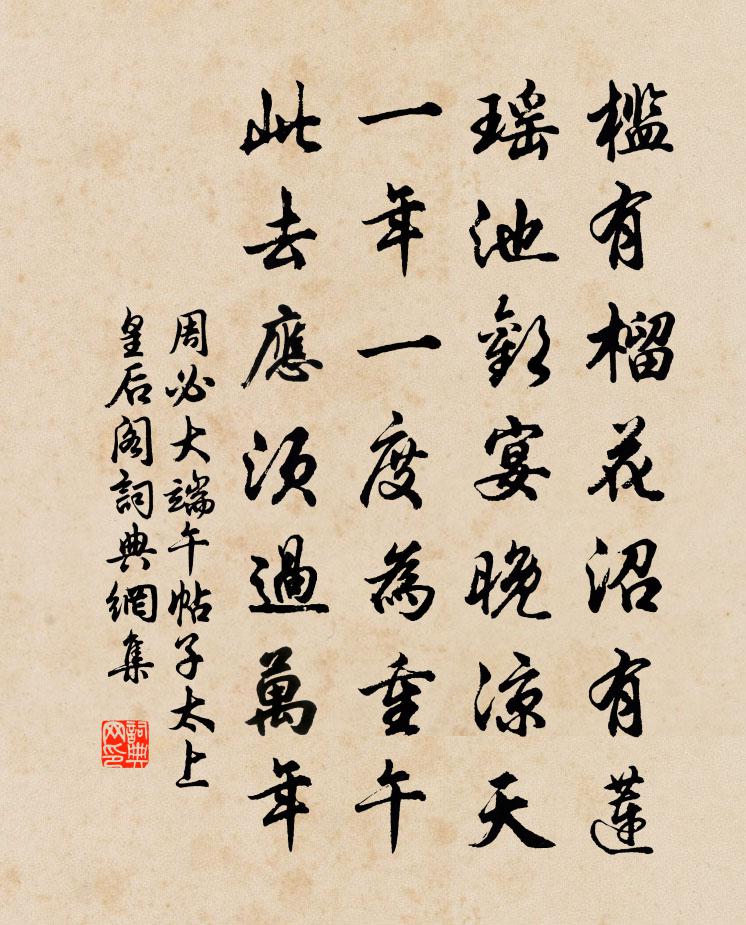 槛有榴花沼有莲
瑶池歡宴晚凉天
一年一度為重午
此去應須過萬年
周必大端午帖子太上
皇后阁詞典網集
詞典
网印